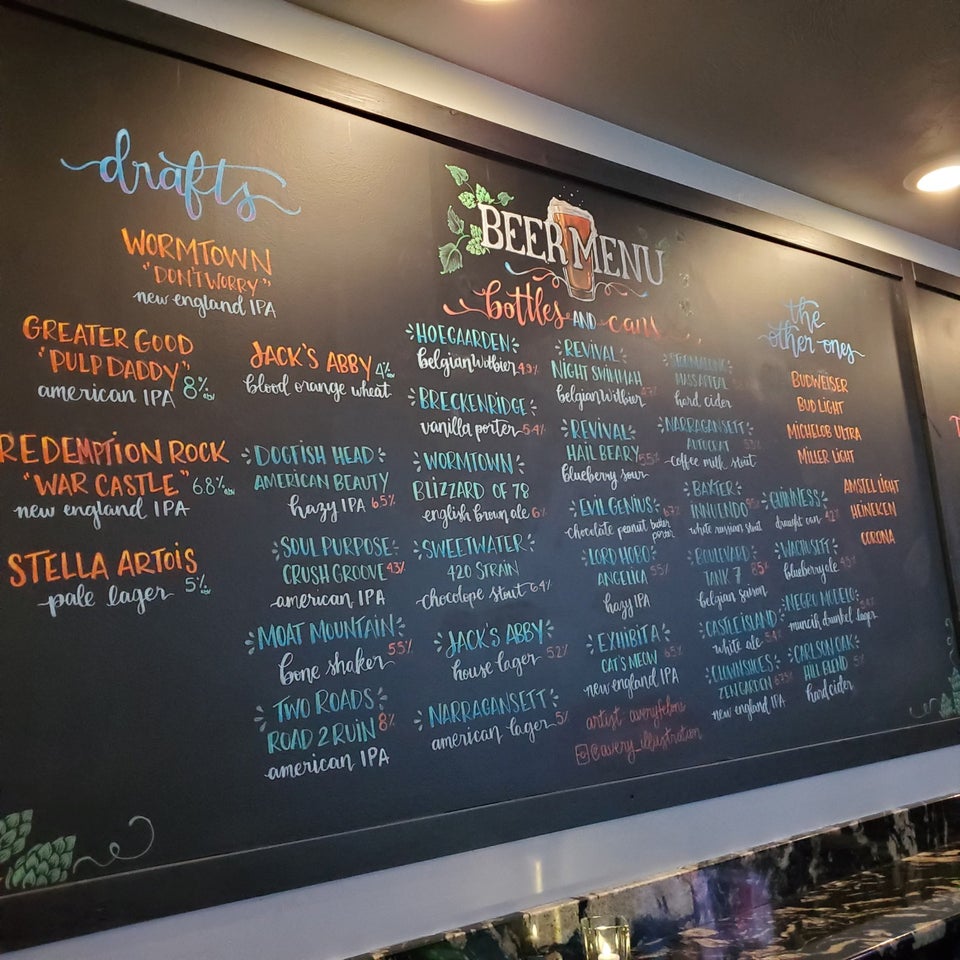 drafts
WORMTOWN
"DON'T WORRY"
new england IPA
GREATER GOOD
"PULP DADDY"
american IPA 8%
REDEMPTION ROCK
"WAR CASTLE" 6.8%
new england IPA
STELLA ARTOIS
pale lager 5%
JACK'S ABBY 4%
blood orange wheat
BEER MENU
bottles AND cans
DOGFISH HEAD
AMERICAN BEAUTY
hazy IPA 6.5%
SOUL PURPOSE
CRUSH GROOVE 4.3%
american IPA
MOAT MOUNTAIN
bone shaker 5.5%
TWO ROADS
ROAD 2 RUIN 8%
american IPA
HOEGAARDEN
belgian witbier 4.9%
BRECKENRIDGE
vanilla porter 5.4%
WORMTOWN
BLIZZARD OF 78
english brown ale 6%
SWEETWATER
420 STRAIN
chocolope stout 6.4%
JACK'S ABBY
house lager 5.2%
NARRAGANSETT
american lager 5%
REVIVAL
NIGHT SWIMMAH
belgian witbier
REVIVAL
HAIL BEARY 5.5%
blueberry sour
EVIL GENIUS
chocolate peanut butter porter
LORD HOBO
ANGELICA 5.5%
hazy IPA
EXHIBIT A
CAT'S MEOW 6.5%
new england IPA
artist: avery
@avery_illustration
MASS APPEAL
hard cider
NARRAGANSETT
AUTOCRAT
coffee milk stout
BAXTER
INNUENDO
white russian stout
BOULEVARD
TANK 7 8.5%
belgian saison
CASTLE ISLAND
white ale
CLOWN SHOES
ZEN GARDEN
new england IPA
GUINNESS
draught can 4.2%
WACHUSETT
blueberry ale
NEGRO MODELO
munich dunkel lager
CARLSON OAK
HILL BLEND 5%
hard cider
the
other ones
BUDWEISER
BUD LIGHT
MICHELOB ULTRA
MILLER LIGHT
AMSTEL LIGHT
HEINEKEN
CORONA